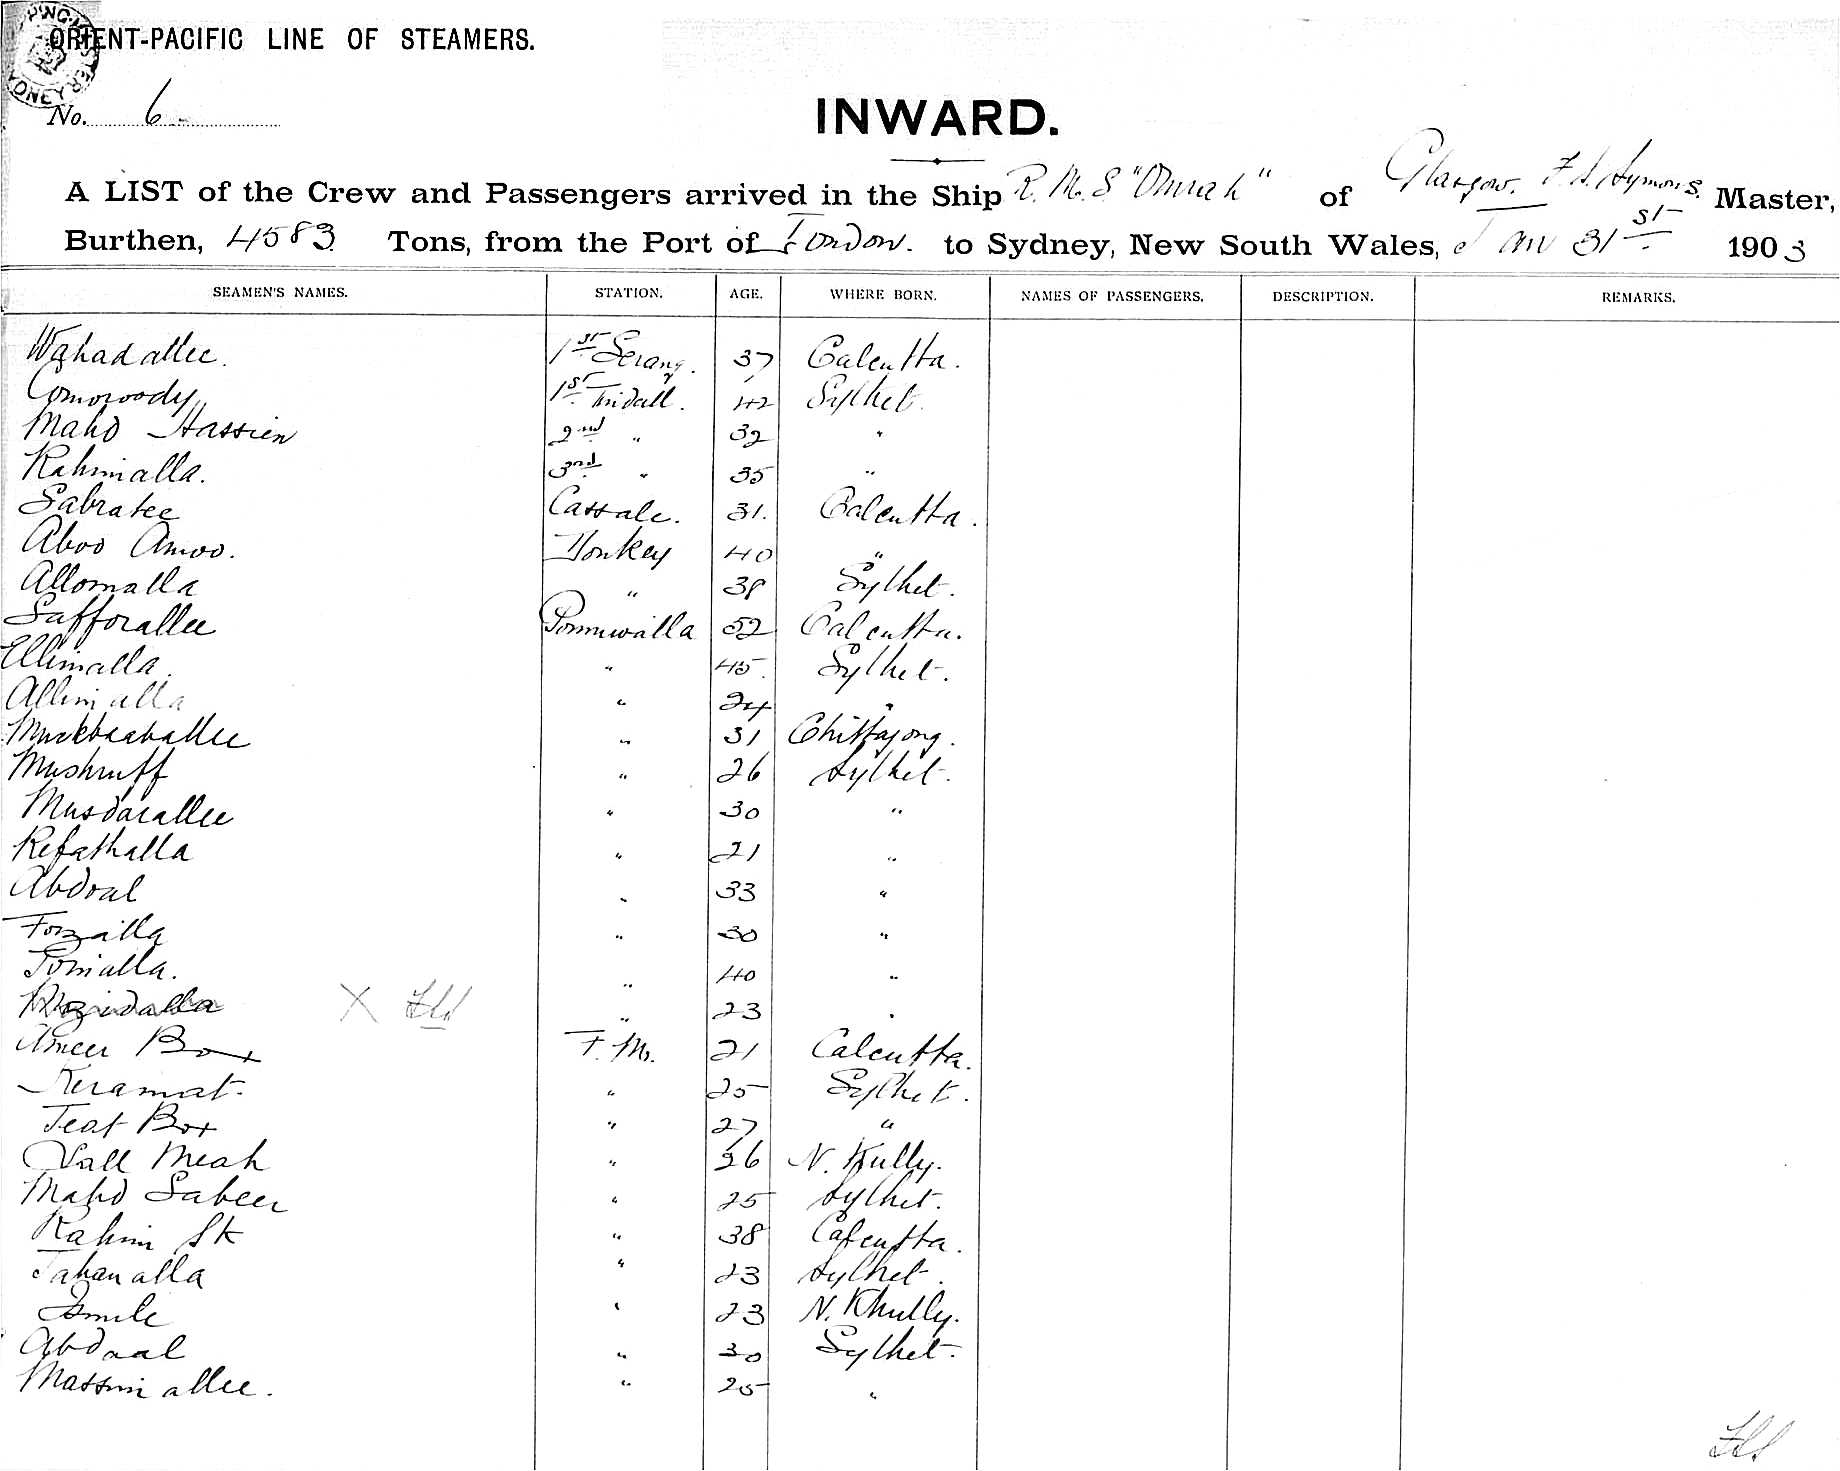 ORIENT-PACIFIC LINE OF STEAMERS.
No. 6
INWARD.
A LIST of the Crew and Passengers arrived in the Ship R.M.S "Omrah" of Glasgow. F. S. Symons. Master,
Burthen, 4583 Tons, from the Port of London. to Sydney, New South Wales, Jan 31st 1903
SEAMEN'S NAMES. STATION. AGE. WHERE BORN. NAMES OF PASSENGERS. DESCRIPTION. REMARKS.
Wahadallee. 1st Serang. 37 Calcutta.
Comoroody 1st Tindall. 42 Sylhet.
Mahd Hassien 2nd " 32 "
Rahimalla. 3rd " 35 "
Sabratee Cassale. 31. Calcutta.
Aboo Amoo. Donkey 40 "
Allomalla " 38 Sylhet.
Safforallee Ponniwalla 52 Calcutta.
Ellimalla. " 45. Sylhet.
Allimalla " 24 "
" 31 Chittagong.
Mushruff " 26 Sylhet.
Musdarallee " 30 "
Refathalla " 21 "
Abdoal " 33 "
Fozalla " 30 "
Tomalla. " 40 "
Rozidalla X " 23 "
Ameer Box F.M. 21 Calcutta.
Keramat. " 25 Sylhet.
Teat Box " 27 "
Lall Meah " 26 N. Kully.
Mahd Sabeer " 25 Sylhet.
Rahim Sk " 38 Calcutta.
Tahanalla " 23 Sylhet.
Ismile " 23 N. Khully.
Abdaal " 30 Sylhet.
Massimallee. " 25 "